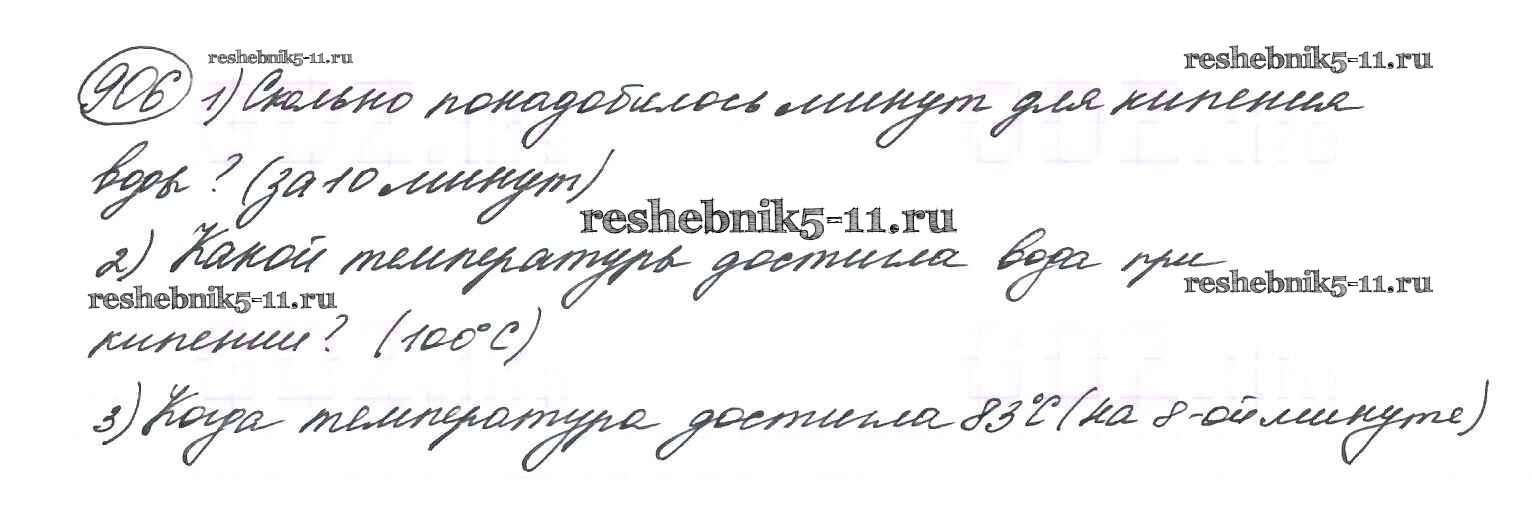 reshebnik5-11.ru
reshebnik5-11.ru
906 1) Сколько понадобилось минут для кипения
воды? (за 10 минут)
reshebnik5-11.ru
2) Какой температуры достигла вода при
reshebnik5-11.ru
reshebnik5-11.ru
кипении? (100°С)
3) Когда температура достигла 83°С (на 8-ой минуте)